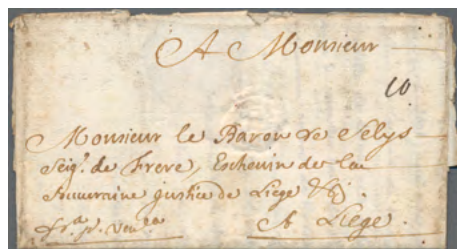 A Monsieur
10
Monsieur le Baron de Selys
Seigr. de Frere, Eschevin de la
Souveraine justice de Liege &c.
A Liege.